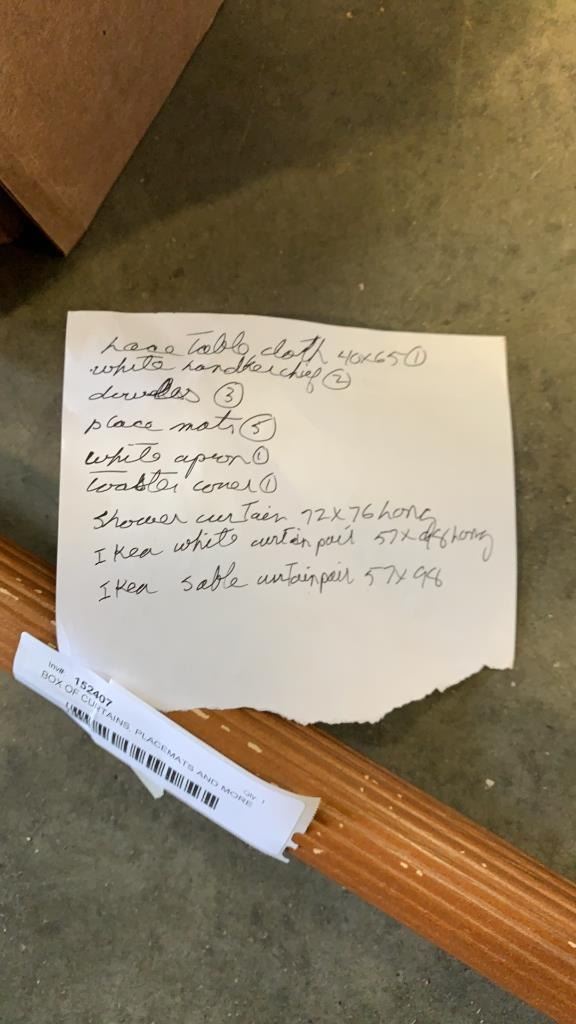 Table cloth 40x65 ①
white handkerchief ②
③
place mats ⑤
white apron ①
toaster cover ①
Shower curtain 72x76 Long
Ikea white curtain pair 57x98 Long
Ikea sable curtain pair 57x98
Inv# 152407
BOX OF CURTAINS, PLACEMATS AND MORE
Qty: 1